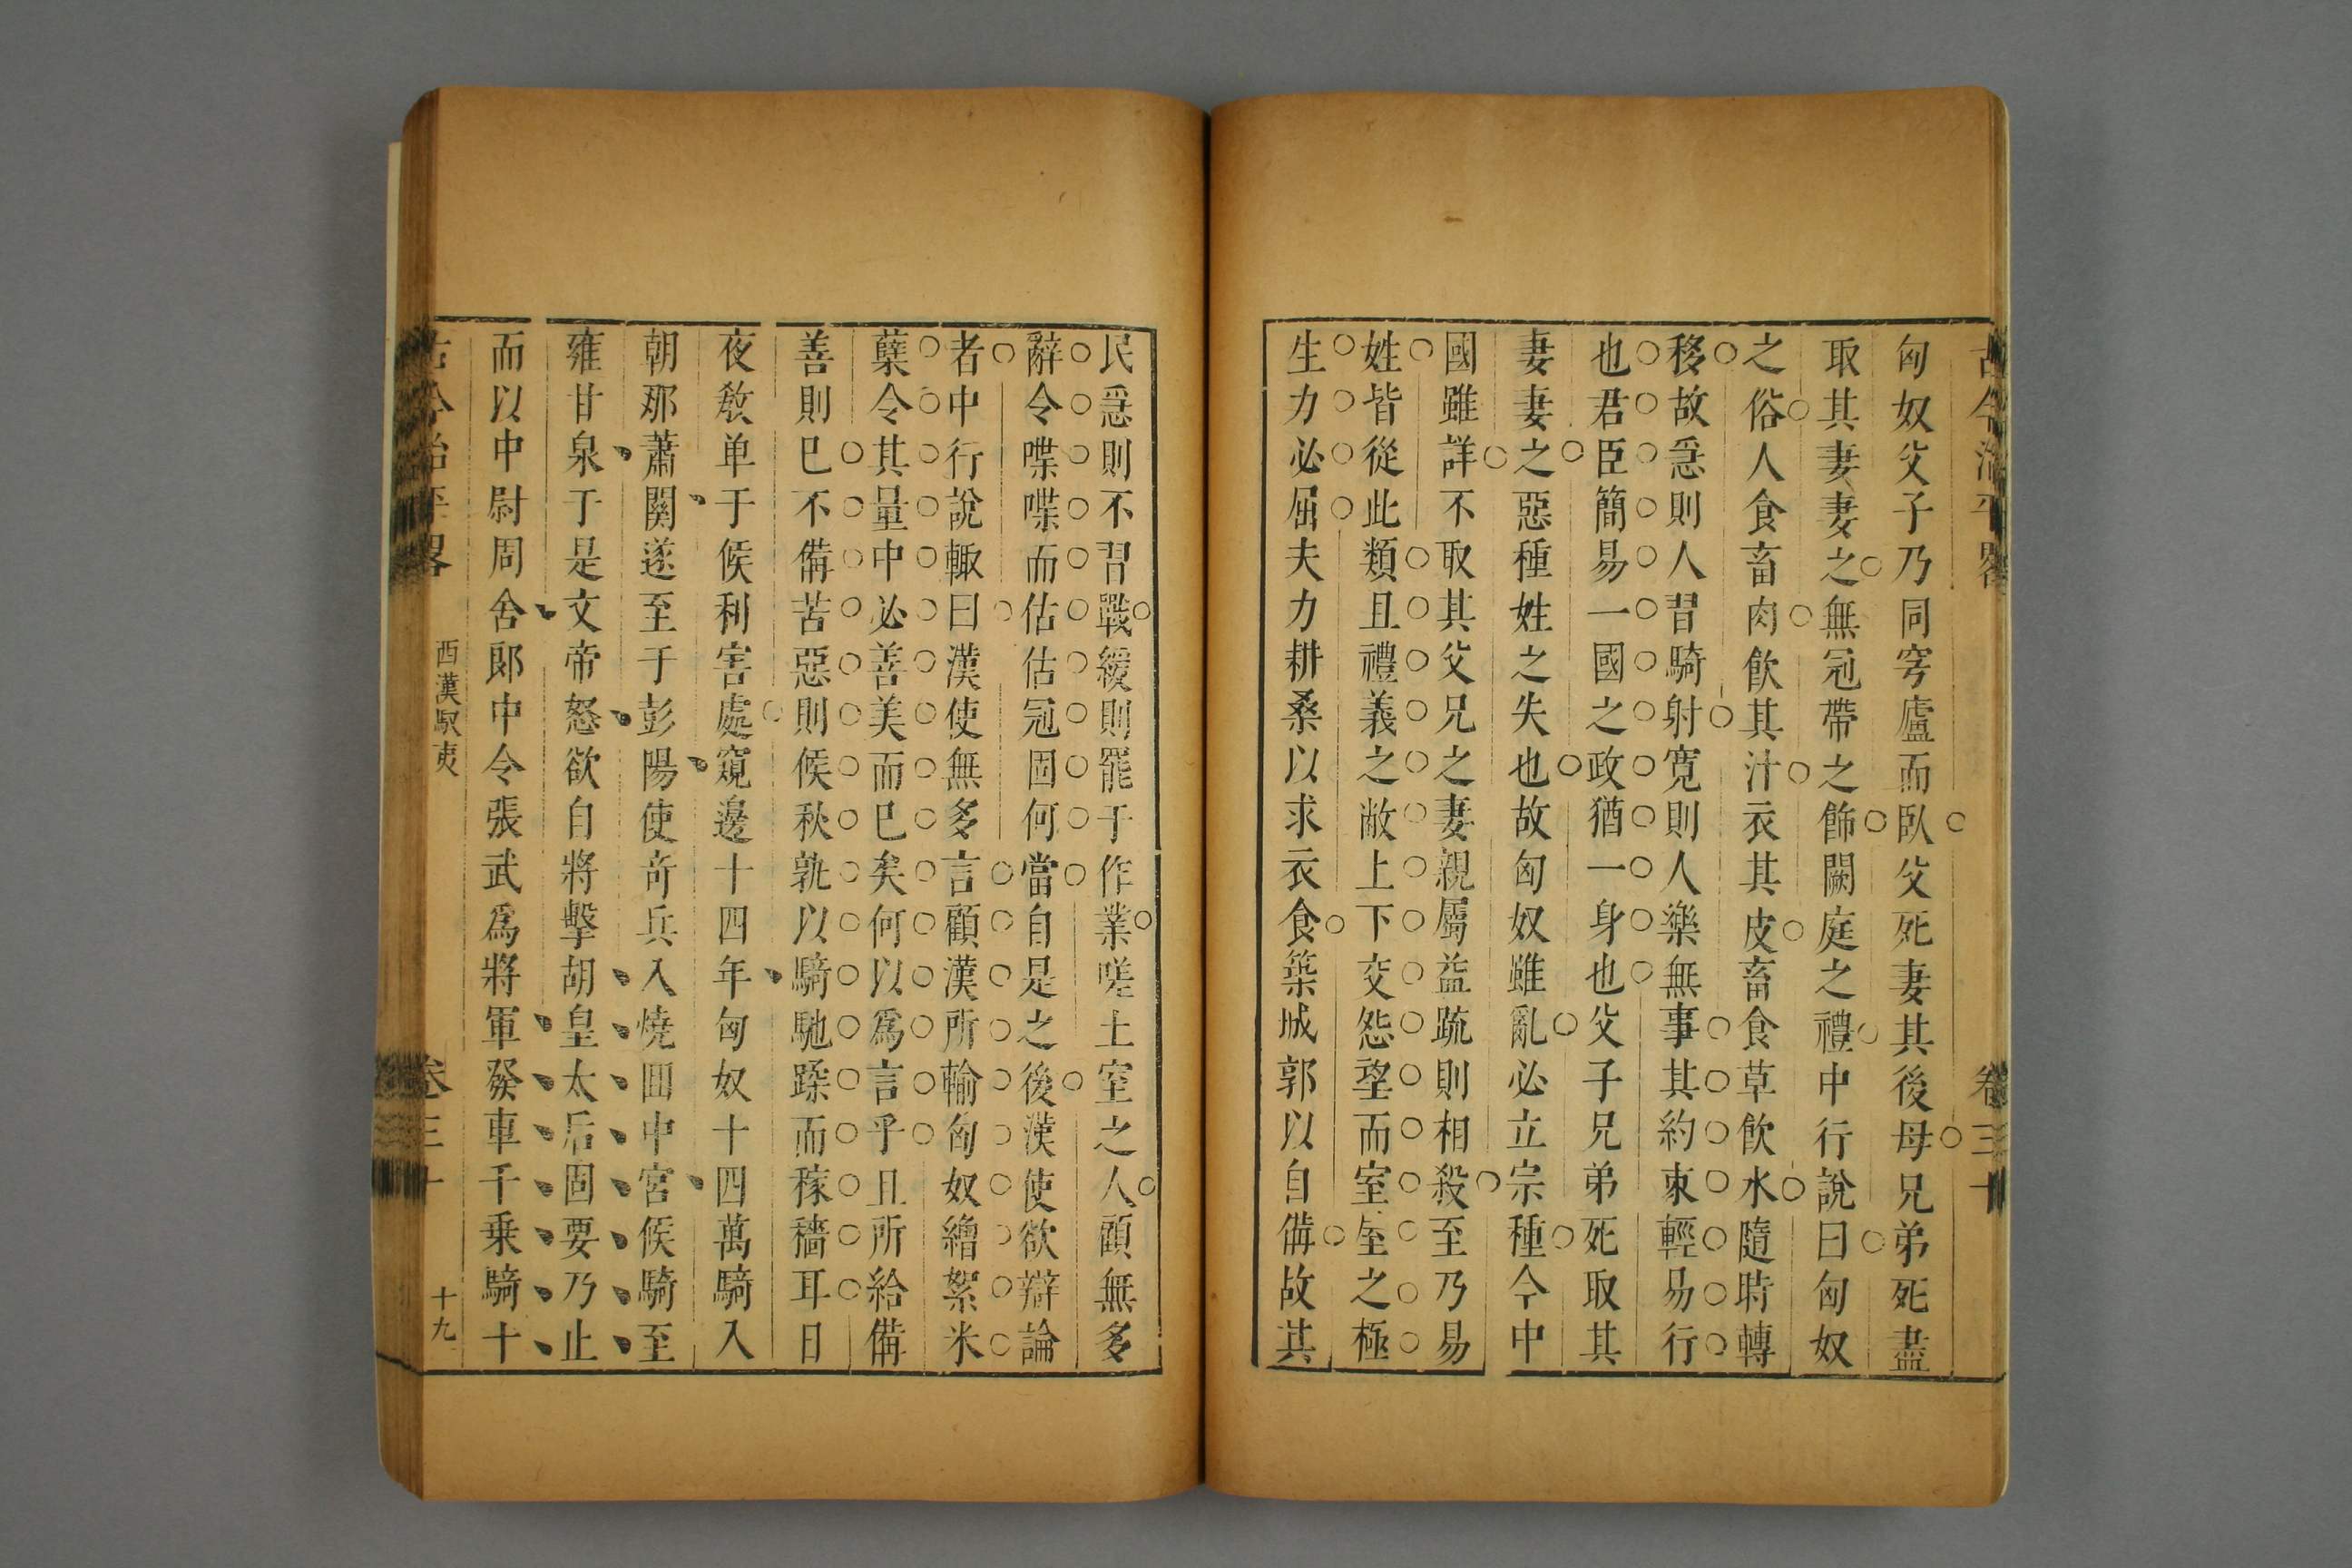 古今治平畧 卷三十
匈奴父子乃同穹廬而臥父死妻其後母兄弟死盡
取其妻妻之無冠帶之飾闕庭之禮中行說曰匈奴
之俗人食畜肉飲其汁衣其皮畜食草飲水隨時轉
移故急則人習騎射寬則人樂無事其約束輕易行
也君臣簡易一國之政猶一身也父子兄弟死取其
妻妻之惡種姓之失也故匈奴雖亂必立宗種今中
國雖詳不取其父兄之妻親屬益疏則相殺至乃易
姓皆從此類且禮義之敝上下交怨望而室屋之極
生力必屈夫力耕桑以求衣食築城郭以自備故其
民急則不習戰緩則罷于作業嗟土室之人顧無多
辭令喋喋而佔佔冠固何當自是之後漢使欲辯論
者中行說輙曰漢使無多言顧漢所輸匈奴繒絮米
蘖令其量中必善美而已矣何以爲言乎且所給備
善則已不備苦惡則候秋孰以騎馳蹂而稼穡耳日
夜敎单于候利害處窺邊十四年匈奴十四萬騎入
朝那蕭關遂至于彭陽使奇兵入燒囬中宮候騎至
雍甘泉于是文帝怒欲自將擊胡皇太后固要乃止
而以中尉周舍郎中令張武爲將軍發車千乗騎十
古今治平畧 西漢馭夷 卷三十 十九